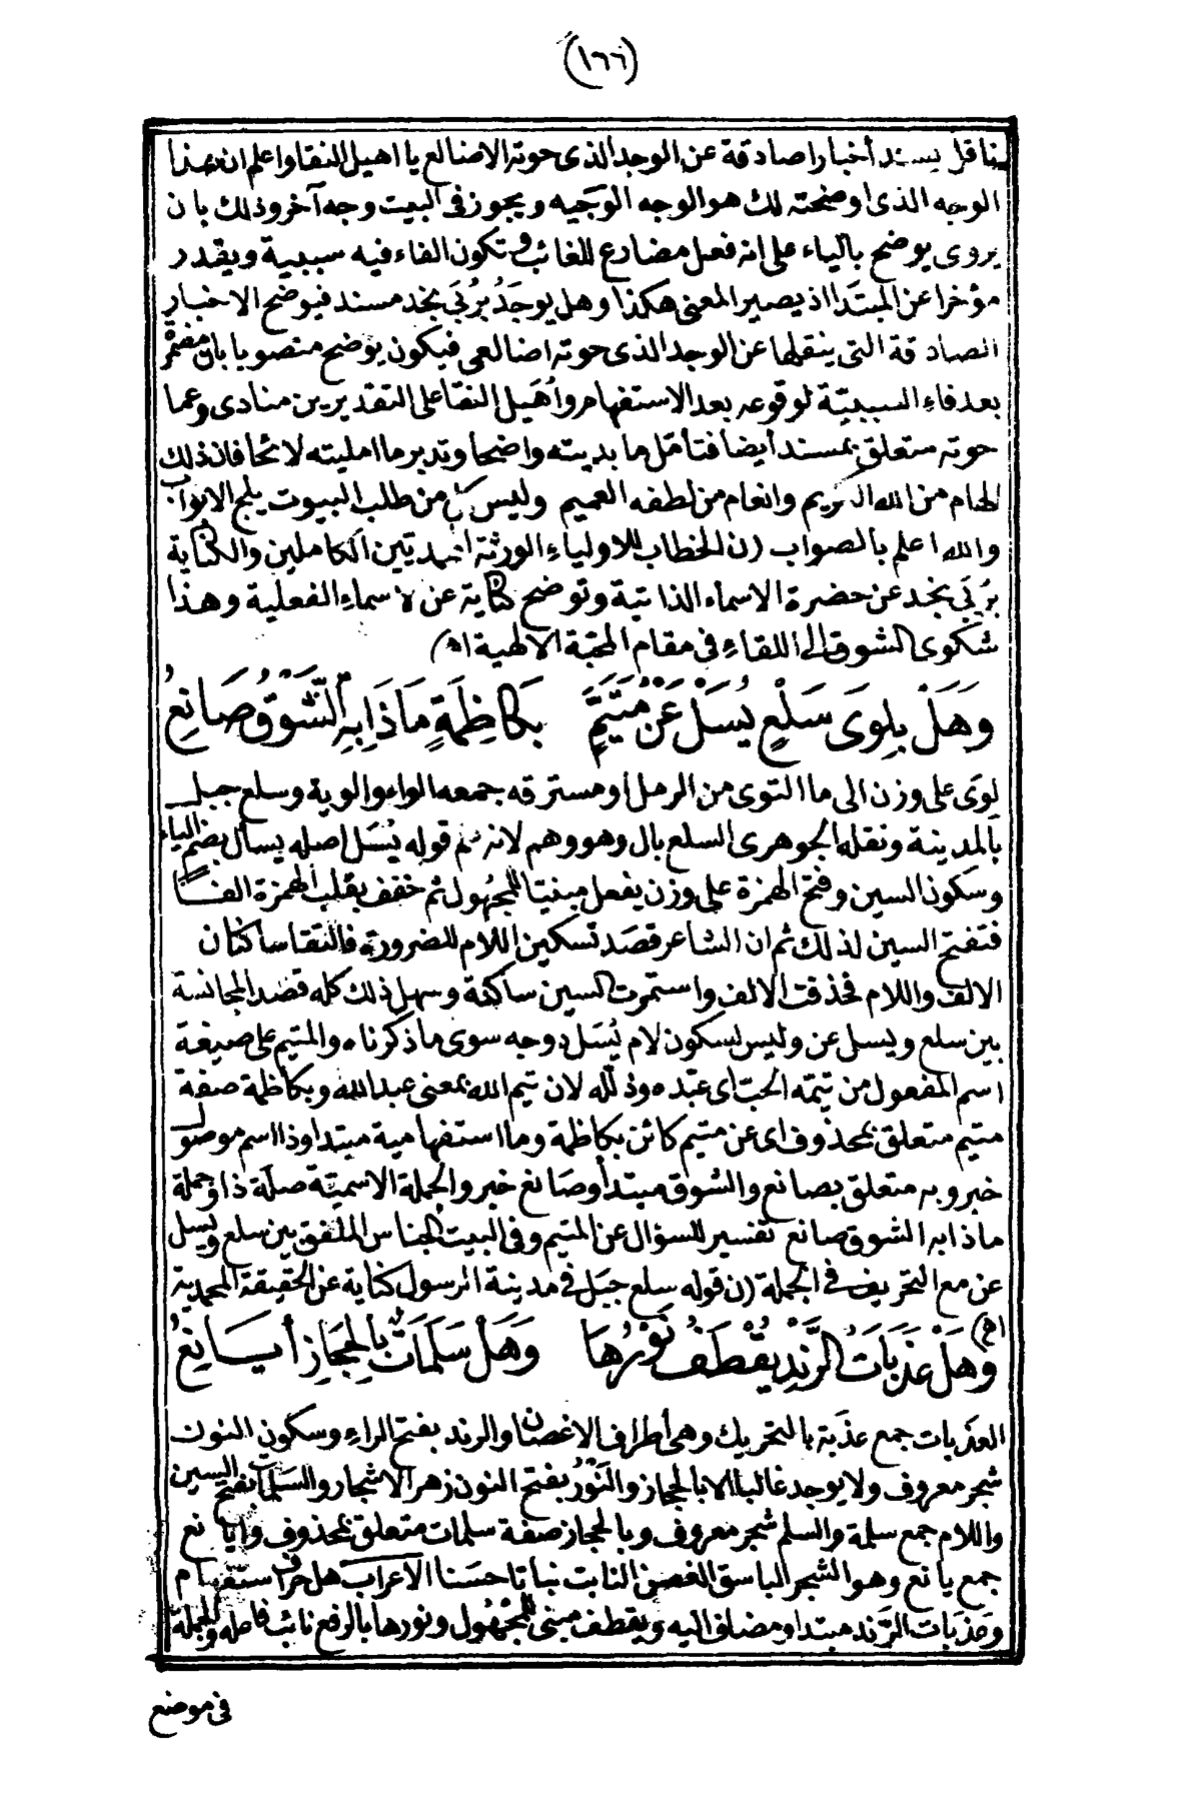 (١٦٦)
بناقل يسند أخبارا صادقة عن الوجد الذى حوته الاضالع يا اهيل النقا واعلم ان هذا
الوجه الذى اوضحته لك هو الوجه الوجيه ويجوز فى البيت وجه آخر وذلك بان
يروى يوضح بالياء على انه فعل مضارع للغائب وتكون الفاء فيه سببية ويقدر
مؤخرا عن المبتدا اذ يصير المعنى هكذا وهل يوجَدُ برُبَى نجد مسند فيوضح الاخبار
الصادقة التى ينقلها عن الوجد الذى حوته اضالعى فيكون يوضح منصوبا بان مضمرة
بعد فاءِ السببيّة لوقوعه بعد الاستفهام وأُهَيل النقا على التقديرين منادى وعما
حوته متعلق بمسند أيضا فتأمّل ما بديته واضحا وتدبر ما امليته لائحا فان ذلك
الهام من الله الكريم وانعام من لطفه العميم وليس كل من طلب البيوت يلج الابواب
والله اعلم بالصواب (ن الخطاب للاولياءِ الورثة المحمديين الكاملين والكناية
برُبَى نجد عن حضرة الاسماء الذاتية وتوضح كناية عن الاسماءِ الفعلية وهذا
شكوى الشوق الى اللقاءِ فى مقام المحبة الالهية اه)
وَهَلْ بِلِوَى سَلْعٍ يُسَلْ عَنْ مُتَيَّمٍ بِكَاظِمَةٍ مَاذَا بِهِ الشَّوْقُ صَانِعُ
لوَى على وزن الى ما التوى من الرمل أو مسترقه جمعه الواء والوية وسلع جبل
بالمدينة ونقله الجوهرى السلع بال وهو وهم لانه علم قوله يُسَل اصله يسأل بضم الياء
وسكون السين وفتح الهمزة على وزن يفعل مبنيا للمجهول ثم خفف بقلب الهمزة الفا
فتفتح السين لذلك ثم ان الشاعر قصَد تسكين اللام للضرورة فالتقا ساكنان
الالف واللام فحذفت الالف واستمرت السين ساكنة وسهل ذلك كله قصد المجانسة
بين سلع ويسل عن وليس لسكون لام يُسَل وجه سوى ما ذكرناه والمتيم على صيغة
اسم المفعول من تيّمه الحبّ اى عبّده وذلّله لان تيم الله بمعنى عبد الله وبكاظمة صفة
متيم متعلق بمحذوف اى عن متيم كائن بكاظمة وما استفهامية مبتدا وذا اسم موصول
خبر وبه متعلق بصانع والشوق مبتدأ وصانع خبر والجملة الاسميّة صلة ذا وجملة
ماذا به الشوق صانع تفسير للسؤال عن المتيم وفى البيت الجناس الملفق بين سلع ويسل
عن مع التحريف فى الجملة (ن قوله سلع جبَل فى مدينة الرسول كناية عن الحقيقة المحمدية
اه)
وَهَلْ عَذَبَاتُ الرَّنْدِ يُقْطَفُ نَوْرُهَا وَهَلْ سَلَمَاتٌ بِالحِجَازِ أَيَانِعُ
العذبات جمع عذَبة بالتحريك وهى أطراف الاغصان والرند بفتح الراءِ وسكون النون
شجر معروف ولا يوجد غالبا الا بالحجاز والنَوْرُ بفتح النون زهر الاشجار والسَلمات بفتح السين
واللام جمع سلمة والسلم شجر معروف وبالحجاز صفة سلمات متعلق بمحذوف وايانع
جمع يانع وهو الشجر الباسق الغصن النابت نباتا حسَنا الاعراب هل حرف استفهام
وعذبات الرّند مبتدا ومضاف اليه ويقطف مبنى للمجهول ونورها بالرفع نائب فاعله والجملة
فى موضع